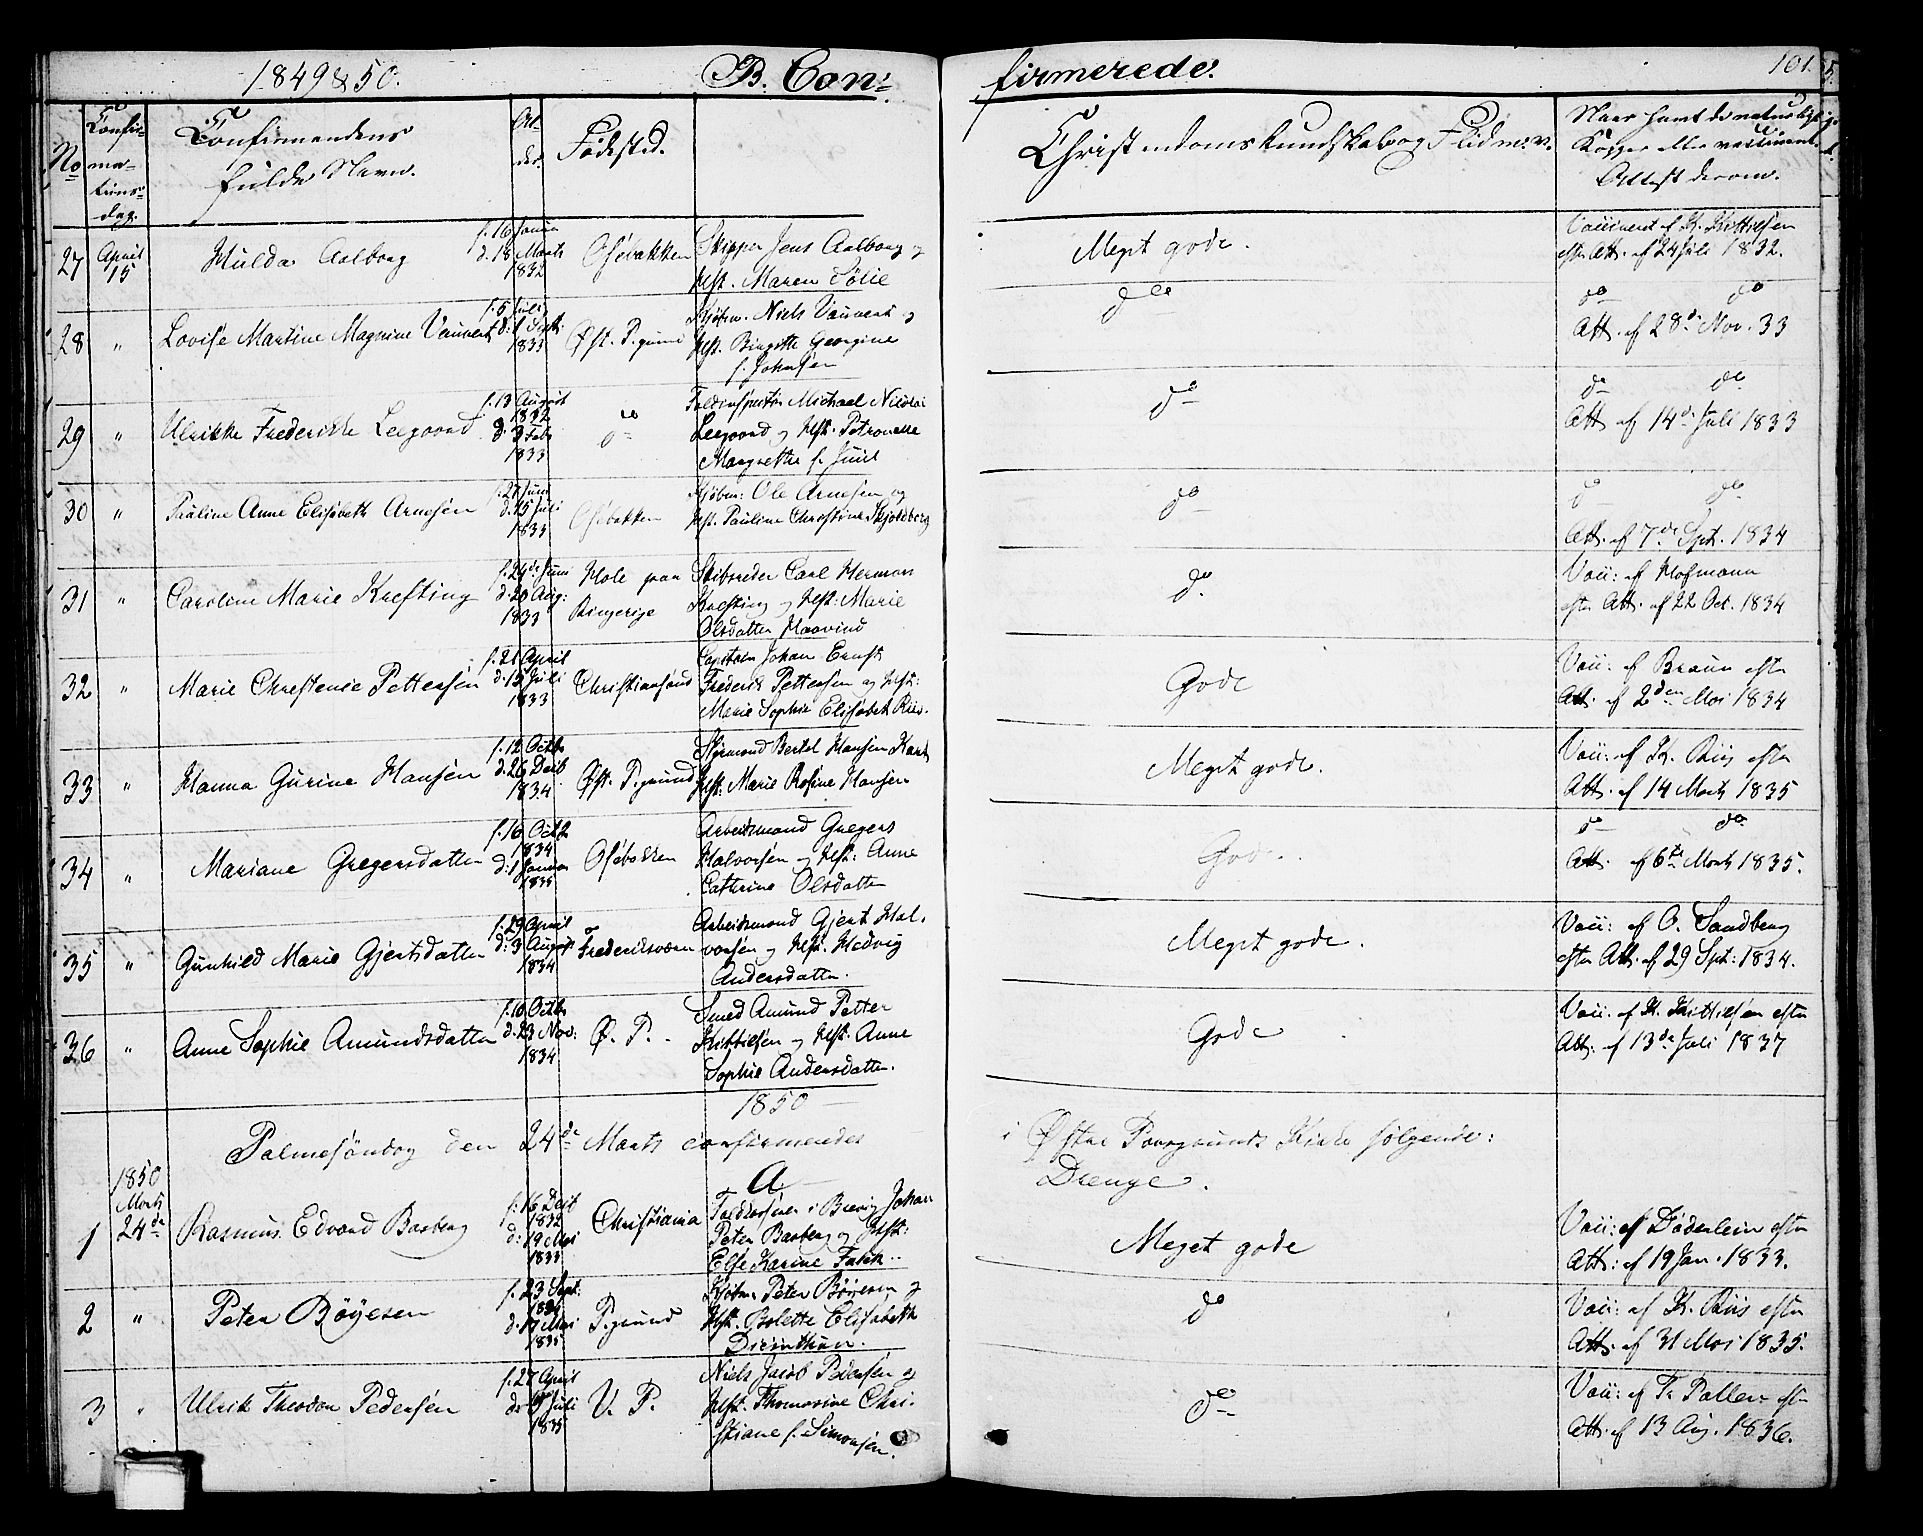 1849 & 50. B. Con= firmerede. 101.
No Confir=ma=tions=dag. Confirmandens fulde Navn. Al-der. Fødested. Christendomskundskab og Flid m.v. Naar havt de naturlige Kopper eller vaccineret Attest derom.
27 April 15 Hulda Aalborg f. 16 Januar d. 18 Marts 1832 Osebakken Skipper Jens Aalborg og Hst. Maren Tølie Meget gode. Vaccineret af K. Kittilsen efter Att. af 24 Juli 1832.
28 " Lovise Martine Magnine Vauvert f. 5 Juli d. 1 Sept. 1833 Øst. P.grund Kjøbm. Niels Vauvert og Hst. Birgitte Georgine f. Johnsen do do do Att. af 28de Nov. 33
29 " Ulrikke Frederikke Leegaard f. 13 August 1832 d. 3 Feb 1833 do Toldinspektør Michael Nicolai Leegaard og Hst. Petronelle Margrethe f. Juul do do do Att. af 14de Juli 1833
30 " Pauline Anne Elisabeth Arnesen f. 27 Juni d. 15 Juli 1833 Osebakken Kjøbm: Ole Arnesen og Hst. Pauline Christine Skjoldborg do do do Att. af 7de Spt. 1834
31 " Caroline Marie Krefting f. 24de Juni d. 20 Aug: 1833 Hole paa Ringerige Skibsreder Carl Herman Krefting og Hst: Marie Olsdatter Haavind do. Vaci: af Hofmann efter Att. af 22 Oct. 1834
32 " Marie Christense Pettersen f. 21 April d. 15 Juli 1833 Christiansand Capitain Johan Ernst Frederik Pettersen og Hst: Marie Sophie Elisabet Riis. Gode Vaci: af Braun efter Att. af 2den Mai 1834
33 " Hanna Gurine Hansen f. 12 Octb d. 26 Decb 1834 Øst. P.grund Styrmand Bertel Hansen Hst. Marie Rosine Hansen Meget gode. Vaci: af K. Riis efter Att. af 14 Marts 1835
34 " Mariane Gregersdatter f. 16 Octb 1834 d. 1 Januar 1835 Osebakken Arbeidsmand Gregers Halvorsen og Hst: Anne Cathrine Olsdatter Gode. do do Att. af 6te Marts 1835.
35 " Gunhild Marie Gjertsdatter f. 29 April d. 3 August 1834 Frederiksværn Arbeidsmand Gjert Halvorsen og Hst. Hedvig Andersdatter. Meget gode. Vaci: af O. Sandberg efter Att. af 29 Spt: 1834.
36 " Anne Sophie Amundsdatter f. 10 Octb d. 23 Nov: 1834 Ø. P. Smed Amund Petter Kittilsen og Hst. Anne Sophie Andersdatter. Gode Vaci. af K. Kittilsen efter Att: af 13de Juli 1837
1850
Palmesøndag den 24de Marts confirmeredes i Østre Porsgrunds Kirke følgende:
A Drenge.
1 1850 Marts 24de Rasmus Edvard Barberg f. 16 Decb 1832 d. 19 Mai 1833 Christiania Johan Peter Barberg og Hst: Else Karine Falck. Meget gode Vaci: af Døderlein efter Att: af 19 Jan. 1833.
2 " Peter Bøyesen f. 23 Sept. 1834 d. 17 Mai 1835 P.grund Kjøbm. Peter Bøyesen og Hst. Bolette Elisabeth do Vaci: af K. Riis efter Att. af 31 Mai 1835.
3 " Ulrik Theodor Pedersen f. 27 April d. 5 Juli 1835 V. P. Niels Jacob Pedersen og Hst. Thomasine Christiane f. Simonsen. do Vaci: af Fr. Paller efter Att. af 13 Aug. 1836.